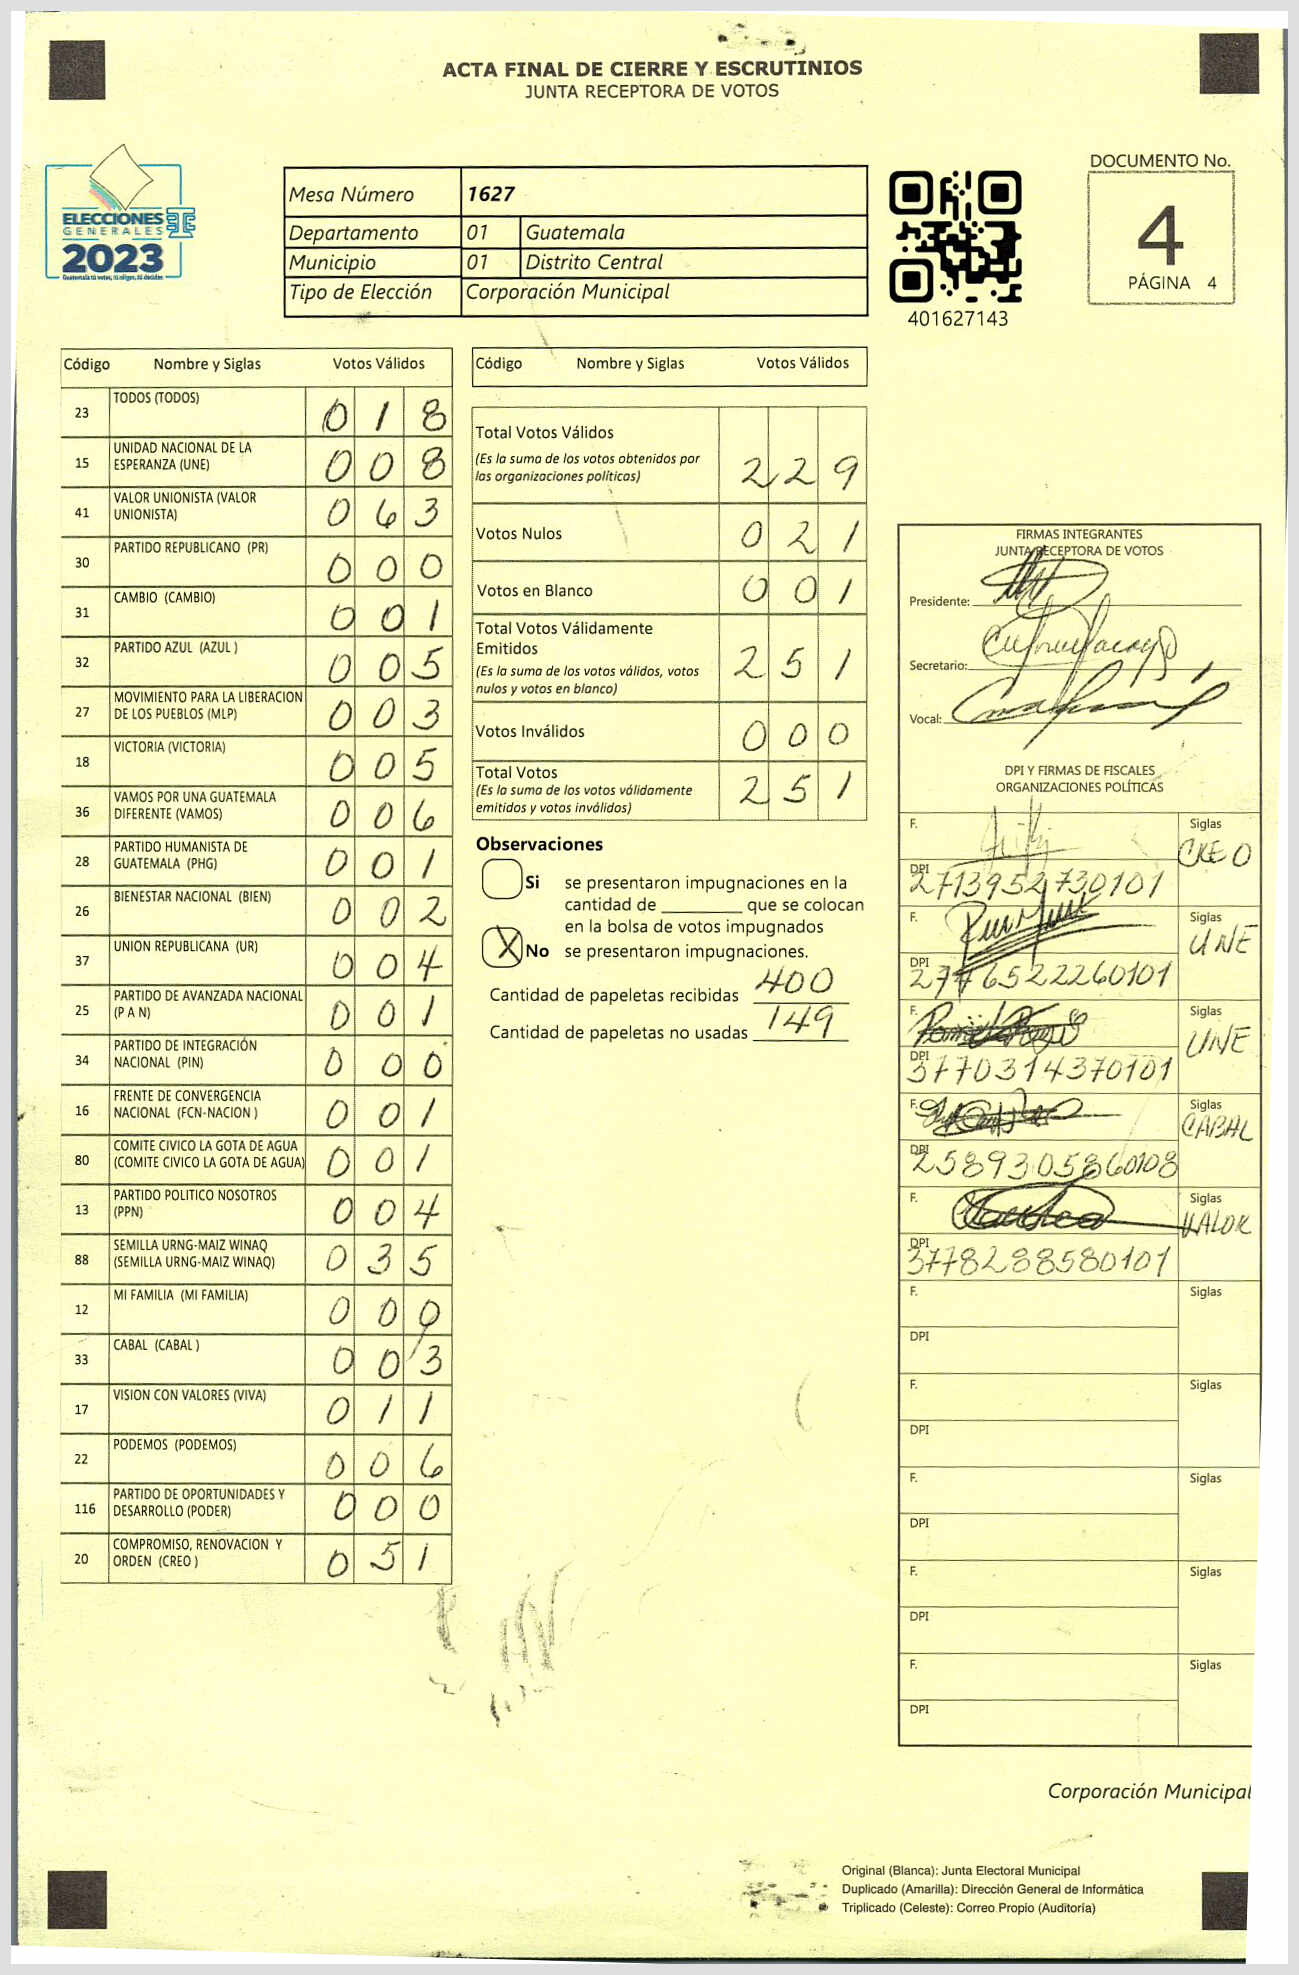 ACTA FINAL DE CIERRE Y ESCRUTINIOS
JUNTA RECEPTORA DE VOTOS
ELECCIONES
GENERALES
2023
Guatemala tú votas, tú eliges, tú decides
Mesa Número 1627
Departamento 01 Guatemala
Municipio 01 Distrito Central
Tipo de Elección Corporación Municipal
401627143
DOCUMENTO No.
4
PÁGINA 4
Código Nombre y Siglas Votos Válidos
23 TODOS (TODOS) 0 1 8
15 UNIDAD NACIONAL DE LA
ESPERANZA (UNE) 0 0 8
41 VALOR UNIONISTA (VALOR
UNIONISTA) 0 6 3
30 PARTIDO REPUBLICANO (PR) 0 0 0
31 CAMBIO (CAMBIO) 0 0 1
32 PARTIDO AZUL (AZUL ) 0 0 5
27 MOVIMIENTO PARA LA LIBERACION
DE LOS PUEBLOS (MLP) 0 0 3
18 VICTORIA (VICTORIA) 0 0 5
36 VAMOS POR UNA GUATEMALA
DIFERENTE (VAMOS) 0 0 6
28 PARTIDO HUMANISTA DE
GUATEMALA (PHG) 0 0 1
26 BIENESTAR NACIONAL (BIEN) 0 0 2
37 UNION REPUBLICANA (UR) 0 0 4
25 PARTIDO DE AVANZADA NACIONAL
(P A N) 0 0 1
34 PARTIDO DE INTEGRACIÓN
NACIONAL (PIN) 0 0 0
16 FRENTE DE CONVERGENCIA
NACIONAL (FCN-NACION ) 0 0 1
80 COMITE CIVICO LA GOTA DE AGUA
(COMITE CIVICO LA GOTA DE AGUA) 0 0 1
13 PARTIDO POLITICO NOSOTROS
(PPN) 0 0 4
88 SEMILLA URNG-MAIZ WINAQ
(SEMILLA URNG-MAIZ WINAQ) 0 3 5
12 MI FAMILIA (MI FAMILIA) 0 0 0
33 CABAL (CABAL ) 0 0 3
17 VISION CON VALORES (VIVA) 0 1 1
22 PODEMOS (PODEMOS) 0 0 6
116 PARTIDO DE OPORTUNIDADES Y
DESARROLLO (PODER) 0 0 0
20 COMPROMISO, RENOVACION Y
ORDEN (CREO ) 0 5 1
Código Nombre y Siglas Votos Válidos
Total Votos Válidos
(Es la suma de los votos obtenidos por
las organizaciones políticas) 2 2 9
Votos Nulos 0 2 1
Votos en Blanco 0 0 1
Total Votos Válidamente
Emitidos
(Es la suma de los votos válidos, votos
nulos y votos en blanco) 2 5 1
Votos Inválidos 0 0 0
Total Votos
(Es la suma de los votos válidamente
emitidos y votos inválidos) 2 5 1
Observaciones
Si se presentaron impugnaciones en la
cantidad de ________ que se colocan
en la bolsa de votos impugnados
X No se presentaron impugnaciones.
Cantidad de papeletas recibidas 400
Cantidad de papeletas no usadas 149
FIRMAS INTEGRANTES
JUNTA RECEPTORA DE VOTOS
Presidente:
Secretario:
Vocal:
DPI Y FIRMAS DE FISCALES
ORGANIZACIONES POLÍTICAS
F. Siglas
CREO
DPI 2713952730101
F. Siglas
UNE
DPI 2746522260101
F. Siglas
UNE
DPI 3770314370101
F. Siglas
CABAL
DPI 2589305860108
F. Siglas
VALOR
DPI 3778288580101
F. Siglas
DPI
F. Siglas
DPI
F. Siglas
DPI
F. Siglas
DPI
F. Siglas
DPI
Corporación Municipal
Original (Blanca): Junta Electoral Municipal
Duplicado (Amarilla): Dirección General de Informática
Triplicado (Celeste): Correo Propio (Auditoría)